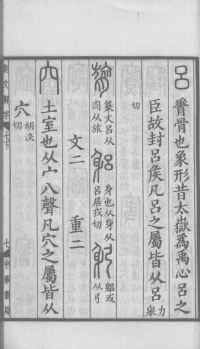 呂 脊骨也象形昔太嶽爲禹心呂之
臣故封呂矦凡呂之屬皆从呂 力舉
切 篆文呂从
肉从旅 躳 身也从身从
呂居戎切 躬 躳或
从弓
文二 重二
穴 土室也从宀八聲凡穴之屬皆从
穴 胡決
切